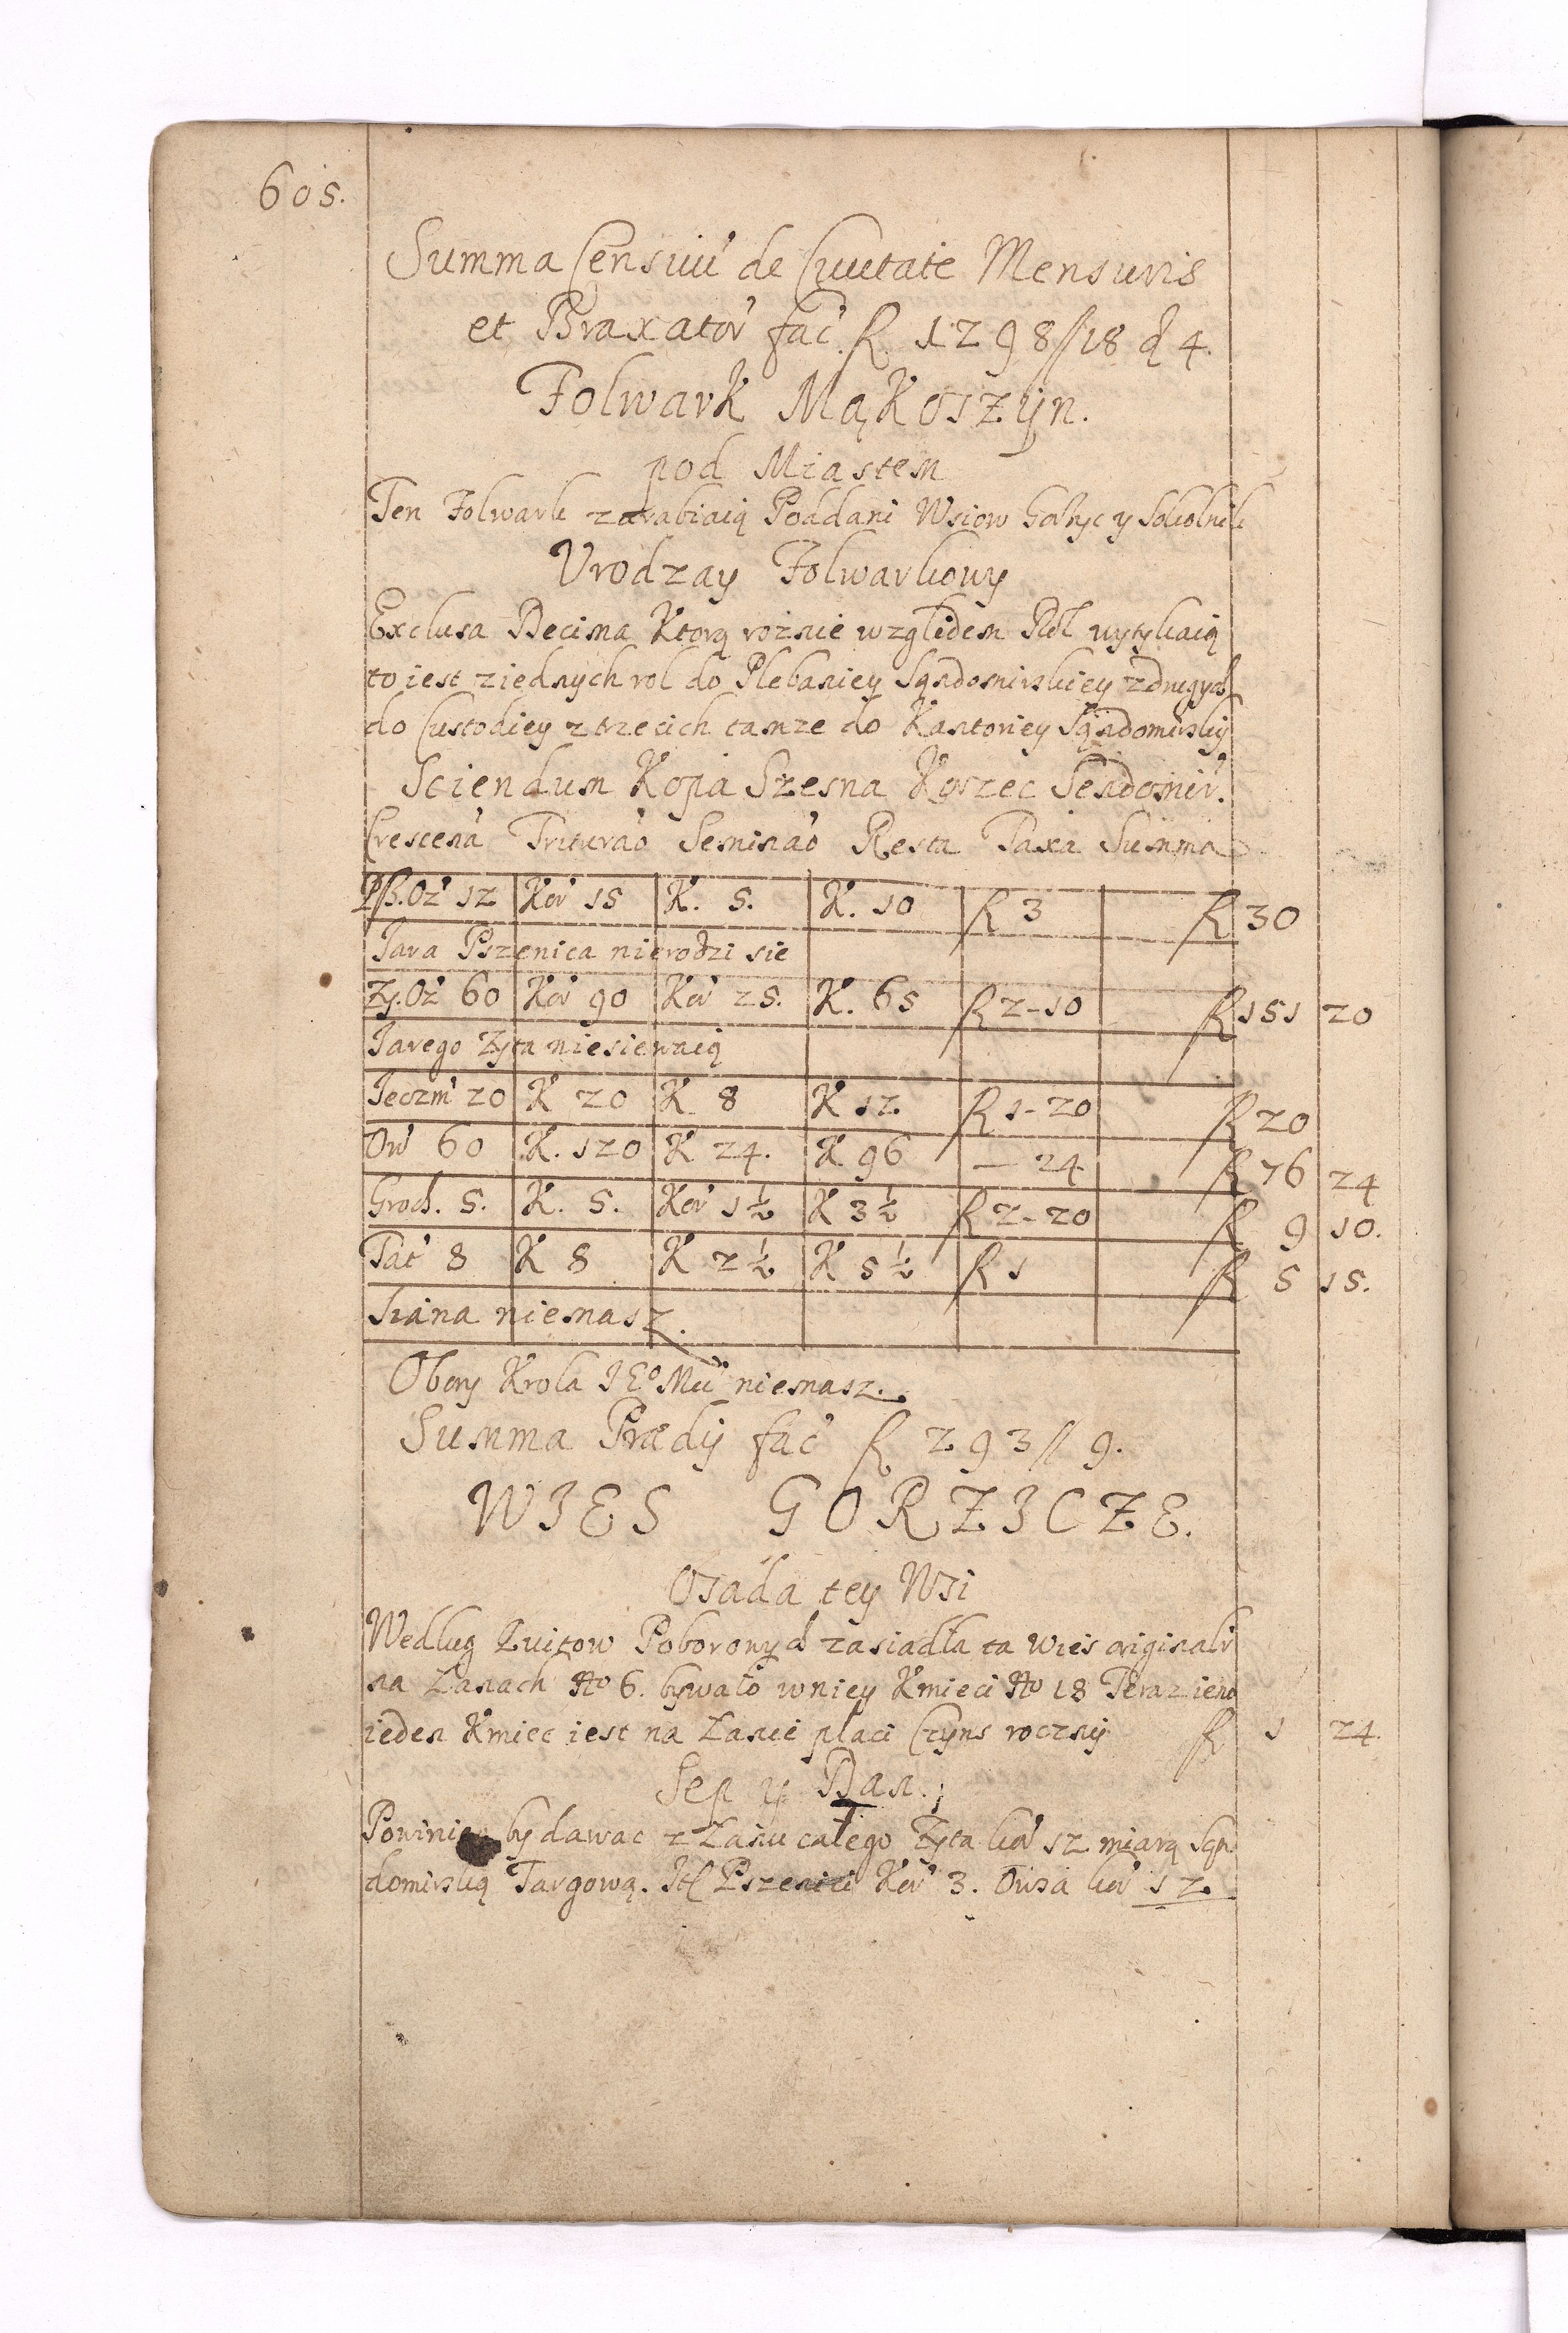 605.
Summa Censuu' de Civitate Mensuris
et Braxator' fac'. R 1298//18 d 4.
Folwark Mąkoszÿn.
pod Miastem
Ten Folwark zarabiaią Poddani Wsiow Gorzyc y Sokolnik
Vrodzay Folwarkowy
Exclusa Decima Ktorą roznie względem Rol wytykaią
to iest ziednych rol do Plebaniey Sąndomirskiey zdrugych
do Custodiey z trzecich tamze do Kantoriey Sąndomirskiy
Sciendum Kopa Szesna Korzec Sendomir'.
Crescen'a Triturao' Seminao' Resta Taxa Summa
Psz. Oz' 12 Kor' 15 K. 5. K. 10 R 3 R 30
Jara Pszenica nierodzi sie
Zy. Oz' 60 Kor' 90 Kor' 25. K. 65 R 2-10 R 151 20
Jarego Zyta niesiewaią
Jeczm' 20 K 20 K 8 K 12 R 1-20 R 20
Ow' 60 K. 120 K 24. K 96 — 24 R 76 24
Groch. 5. K. 5. Kor' 1½ K 3½ R 2-20 R 9 10.
Tat' 8 K 8 K 2½ K 5½ R 1 R 5 15.
Siana niemasz.
Obory Krola JEo Mci niemasz.
Summa Prædÿ fac' R 293//9.
WIES GORZICZE.
Osada tey Wsi
Wedlug Kwitow Poborowych zasiadła ta Wies original'
na Łanach No 6. bywało wniey Kmieci No 18 Teraz ieno
ieden Kmiec iest na Łanie płaci Czyns rocznÿ R 1 24.
Sep y Dan.
Powinien by dawac z Łanu całego Zyta kor' 12 miarą Sąn
domirską Targową. It Pszenici Kor' 3. Owsa kor' 12